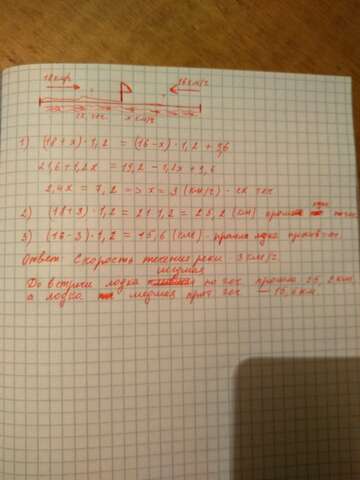 18 км/ч 16 км/ч
ск. теч. x км/ч
1) (18+x)·1,2 = (16-x)·1,2 + 9,6
21,6+1,2x = 19,2 - 1,2x + 9,6
2,4x = 7,2 => x = 3 (км/ч) - ск теч
2) (18+3)·1,2 = 21·1,2 = 25,2 (км) прошла лодка по теч.
3) (16-3)·1,2 = 15,6 (км) - прошла лодка против теч.
Ответ: Скорость течения реки - 3 км/ч
До встречи лодка по теч. прошла 25,2 км,
а лодка прот теч — 15,6 км.